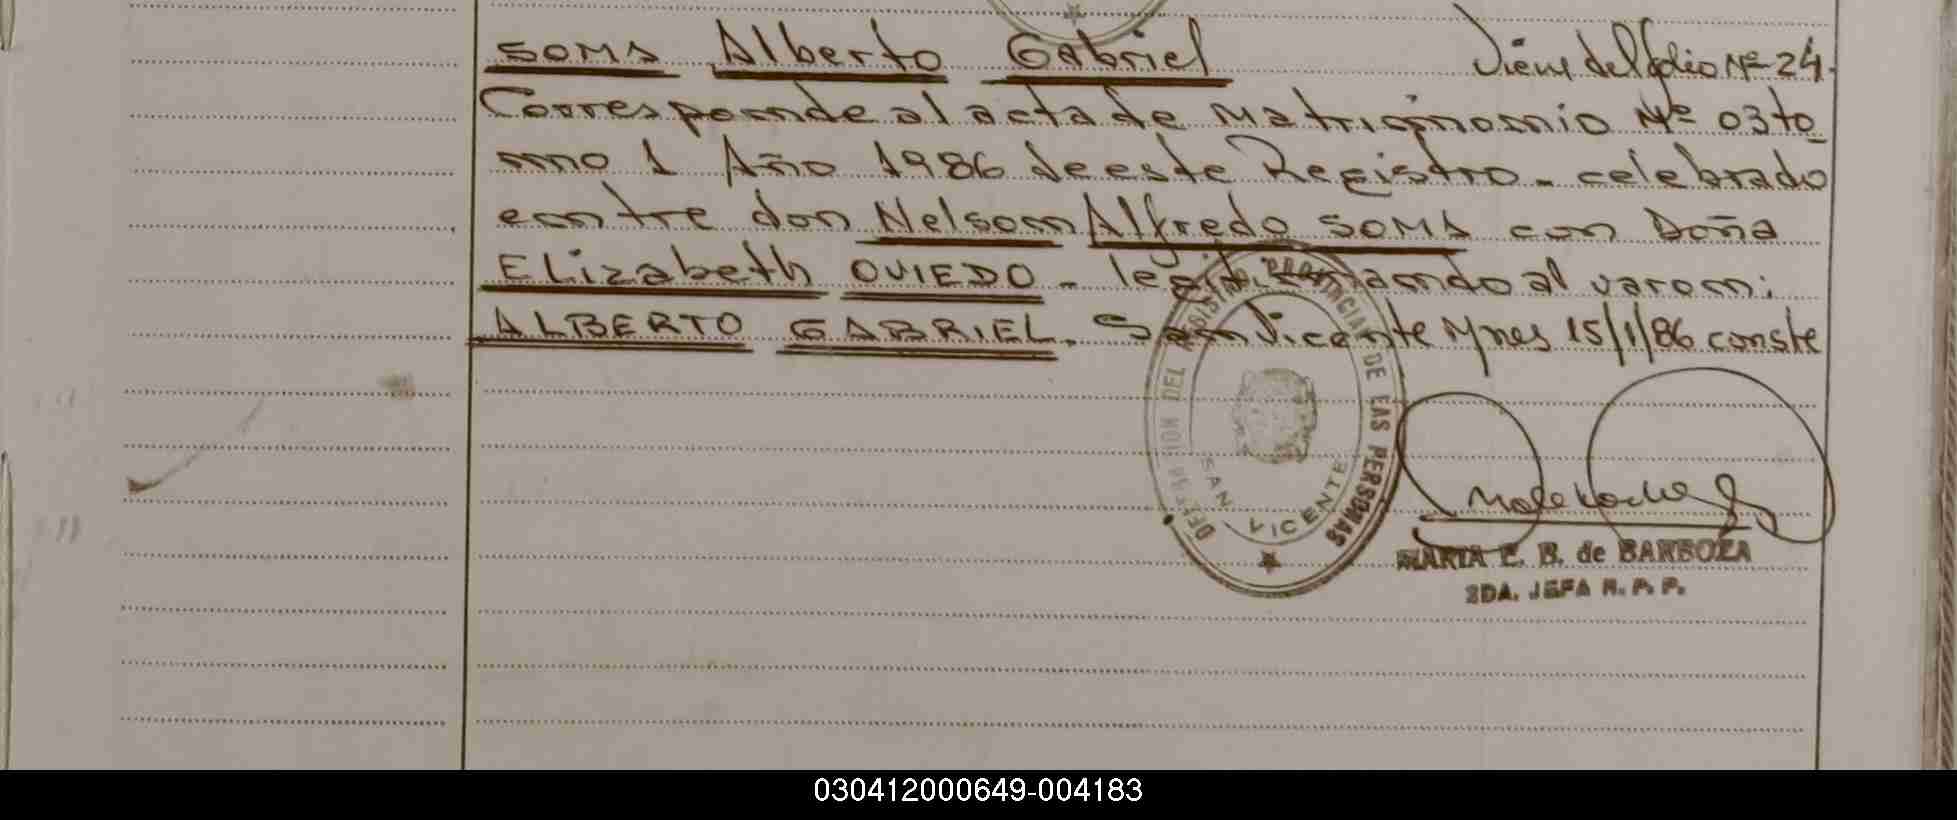 SOMA Alberto Gabriel Viene del folio Nº 24.
Corresponde al acta de Matrimonio Nº 03 to
mo 1 Año 1986 de este Registro - celebrado
entre don Nelson Alfredo SOMA con Doña
Elizabeth OVIEDO - legitimando al varon:
ALBERTO GABRIEL. San Vicente Mnes 15/1/86 conste
DEL REGISTRO PROVINCIAL DE LAS PERSONAS
SAN VICENTE
MARIA E. B. de BARBOZA
2DA. JEFA R. P. P.
030412000649-004183